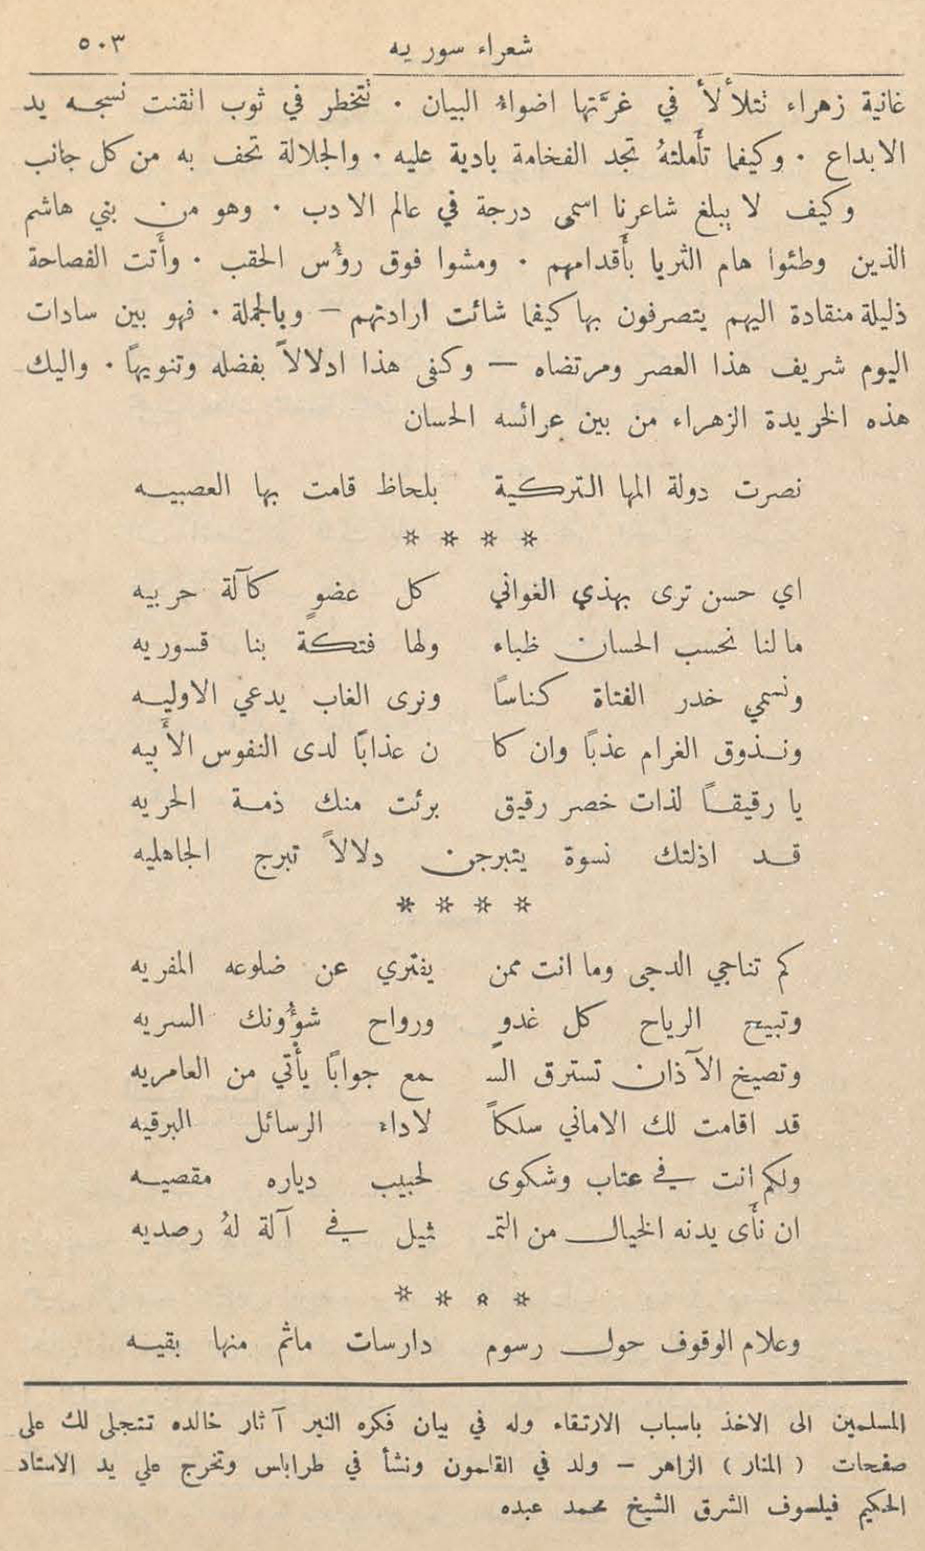 شعراء سوريه ٥٠٣
غانية زهراء نتلألأ في غرَّتها اضواء البيان ٠ نتخطر في ثوب اتقنت نسجـه يد
الابداع ٠ وكيفما تأَملتهُ تجد الفخامة بادية عليه ٠ والجلالة تحف به من كل جانب
وكيف لا يبلغ شاعرنا اسمى درجة في عالم الادب ٠ وهو من بني هاشم
الذين وطئوا هام الثريا بأَقدامهم ٠ ومشوا فوق رؤُس الحقب ٠ وأَتت الفصاحة
ذليلة منقادة اليهم يتصرفون بها كيفما شائت ارادتهم – وبالجملة ٠ فهو بين سادات
اليوم شريف هذا العصر ومرتضاه – وكفى هذا ادلالاً بفضله وتنويهاً ٠ واليك
هذه الخريدة الزهراء من بين عرائسه الحسان
نصرت دولة المها التركية بلحاظ قامت بها العصبيـه
* * * *
اي حسن ترى بهذي الغواني كل عضوٍ كآلة حربيه
ما لنا نحسب الحسان ظباء ولها فتكةٌ بنا قسوريه
ونسمي خدر الفتاة كناسًا ونرى الغاب يدعي الاوليـه
ونـذوق الغرام عذبًا وان كا ن عذابًا لدى النفوس الأَبيه
يا رقيقـًا لذات خصر رقيق برئت منك ذمـة الحريه
قـد اذلتك نسوة يتبرجن دلالاً تبرج الجاهليه
* * * *
كم تناجي الدجى وما انت ممن يفتري عن ضلوعه المفريه
وتبيح الرياح كل غدوٍ ورواح شوؤُونك السريه
وتصيخ الآذان تسترق السـ ـمع جوابًا يأْتي من العامريه
قد اقامت لك الاماني سلكاً لاداء الرسائل البرقيه
ولكم انت في عتاب وشكوى لحبيب دياره مقصيـه
ان نأَى يدنه الخيال من التمـ ثيل في آلة لهُ رصديه
* * * *
وعلام الوقوف حول رسوم دارسات ماثم منها بقيـه
المسلمين الى الاخذ باسباب الارتقاء وله في بيان فكره النير آثار خالده تتجلى لك على
صفحات ( المنار ) الزاهر – ولد في القلمون ونشأ في طرابلس وتخرج على يد الاستاد
الحكيم فيلسوف الشرق الشيخ محمد عبده